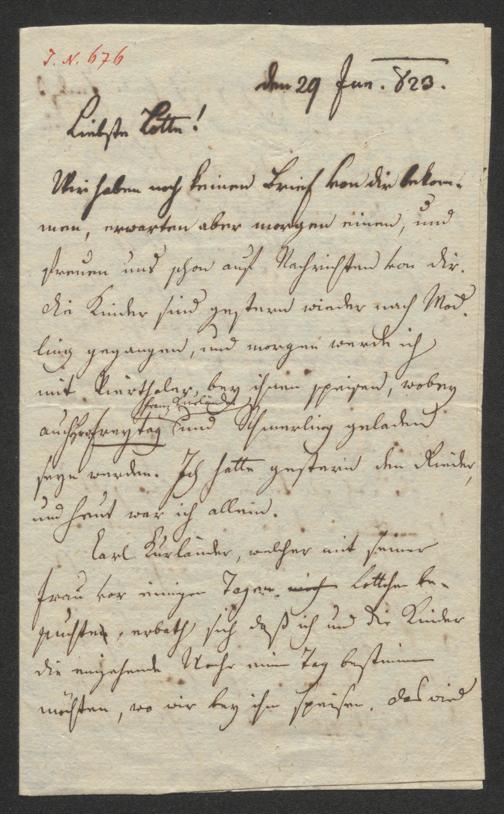 J. N. 676
den 29 Jun. 823.
Liebste Lotte!
Wir haben noch keinen Brief von dir bekom-
men, erwarten aber morgen einen, und
freuen uns schon auf Nachrichten von dir.
die Kinder sind gestern wieder nach Möd-
ling gegangen, und morgen werde ich
mit Vierthaler bey ihnen speisen, wobey
Franz Kurländer
auch Freytag und Schmerling geladen
seyn werden. Ich hatte gestern den Rieder,
und heut war ich allein.
Carl Kurländer, welcher mit seiner
Frau vor einigen Tagen Lottchen be-
suchten, erbath sich daß ich und die Kinder
die angehende Woche einen Tag bestimmen
möchten, wo wir bey ihm speisen. das wird